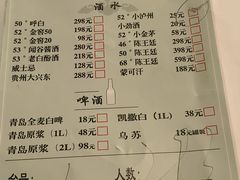 酒水
50°呼白 298元
52°金窖50 198元
52°金窖20 98元
53°闻谷酱酒 288元
53°老白酚酒 218元
威士忌 128元
贵州大兴东 288元
52°小泸州 25元
小劲酒 20元
52°小金茅 58元
46°陈王廷
50°陈王廷
68°陈王廷
蒙可汗 288元
啤酒
青岛全麦白啤 18元
青岛原浆 (1L) 48元
青岛原浆 (2L) 98元
凯撒白 (1L) 38元
乌苏 18元
台号
人数